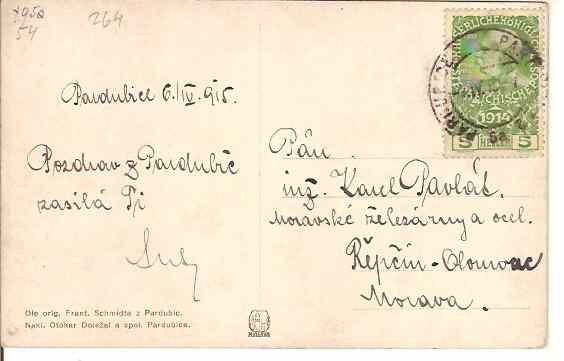 1950
54
264
Pardubice 6/IV 915.
Pozdrav z Pardubic
zasílá Ti
Pan
ing. Karel Pavlát.
Moravské železárny a ocel.
Řepčín-Olomouc
Morava.
5 HELLER 5
1914
Dle orig. Frant. Schmidta z Pardubic.
Nakl. Otokar Doležal a spol. Pardubice.